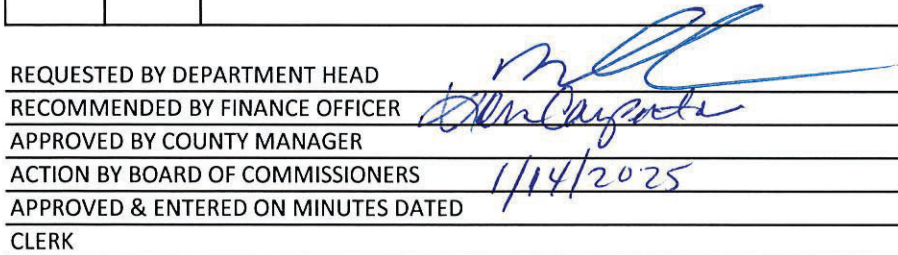 REQUESTED BY DEPARTMENT HEAD
RECOMMENDED BY FINANCE OFFICER Carpenter
APPROVED BY COUNTY MANAGER
ACTION BY BOARD OF COMMISSIONERS 1/14/2025
APPROVED & ENTERED ON MINUTES DATED
CLERK